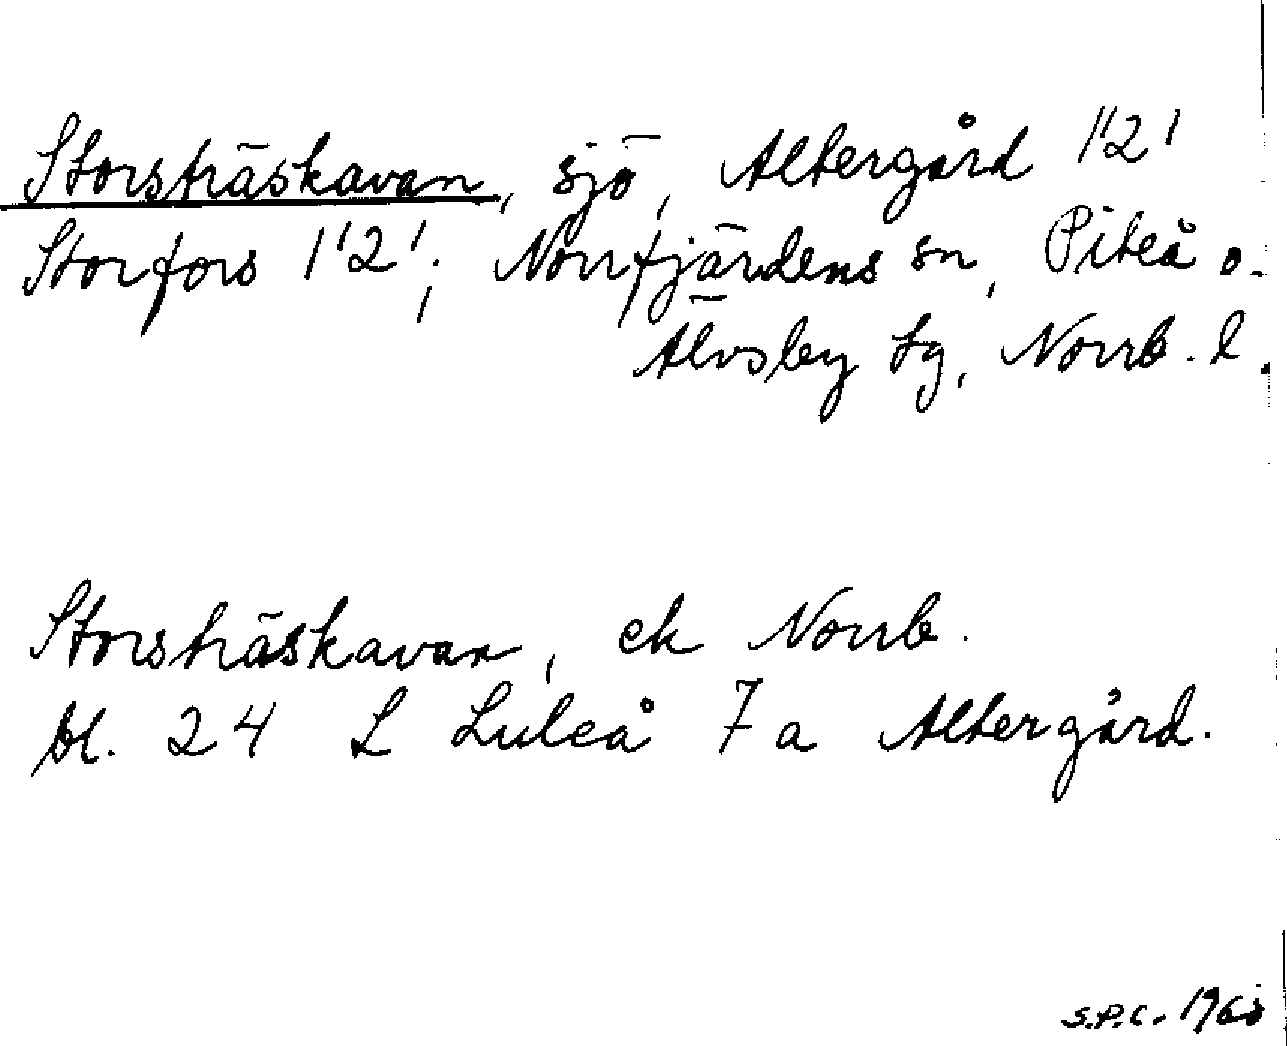 Storsträskavan, sjö, Altergård 1'2'
Storfors 1'2'; Norrfjärdens sn, Piteå o.
Älvsby tg, Norrb. l.
Storsträskavan, ek Norrb.
bl. 24 L Luleå 7 a Altergård.
S.P.C.